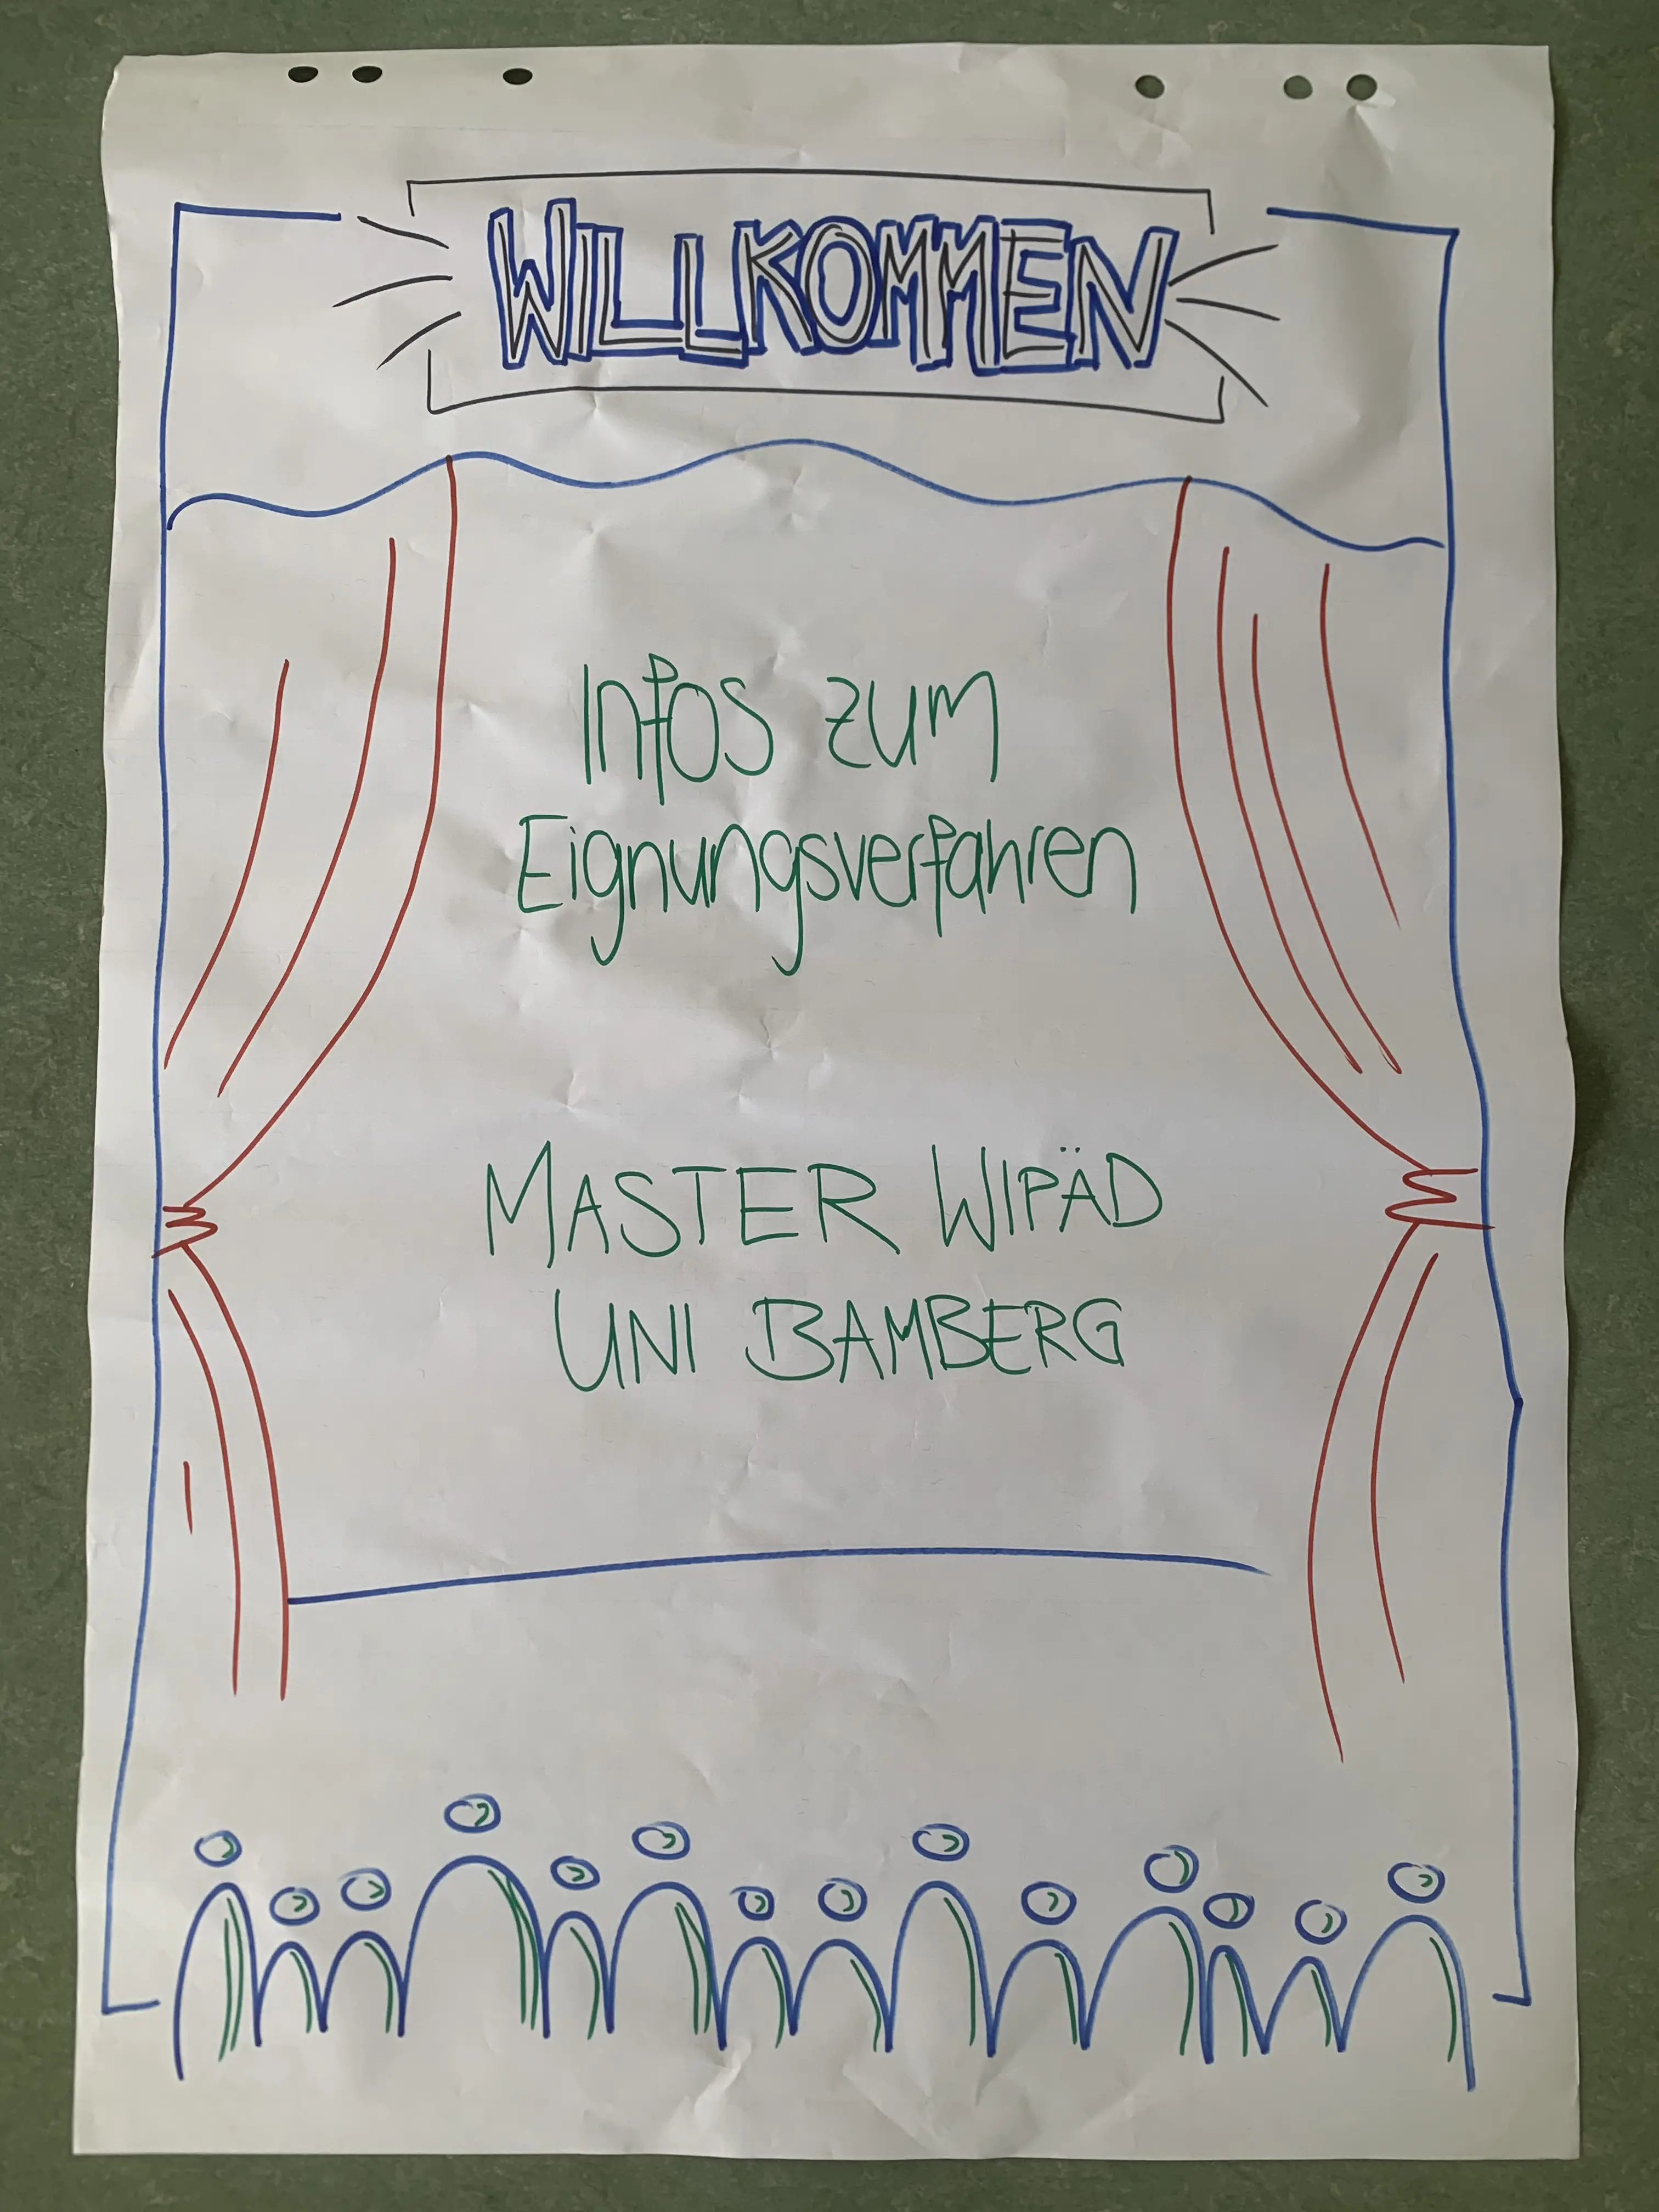 WILLKOMMEN
Infos zum
Eignungsverfahren
MASTER WIPÄD
UNI BAMBERG